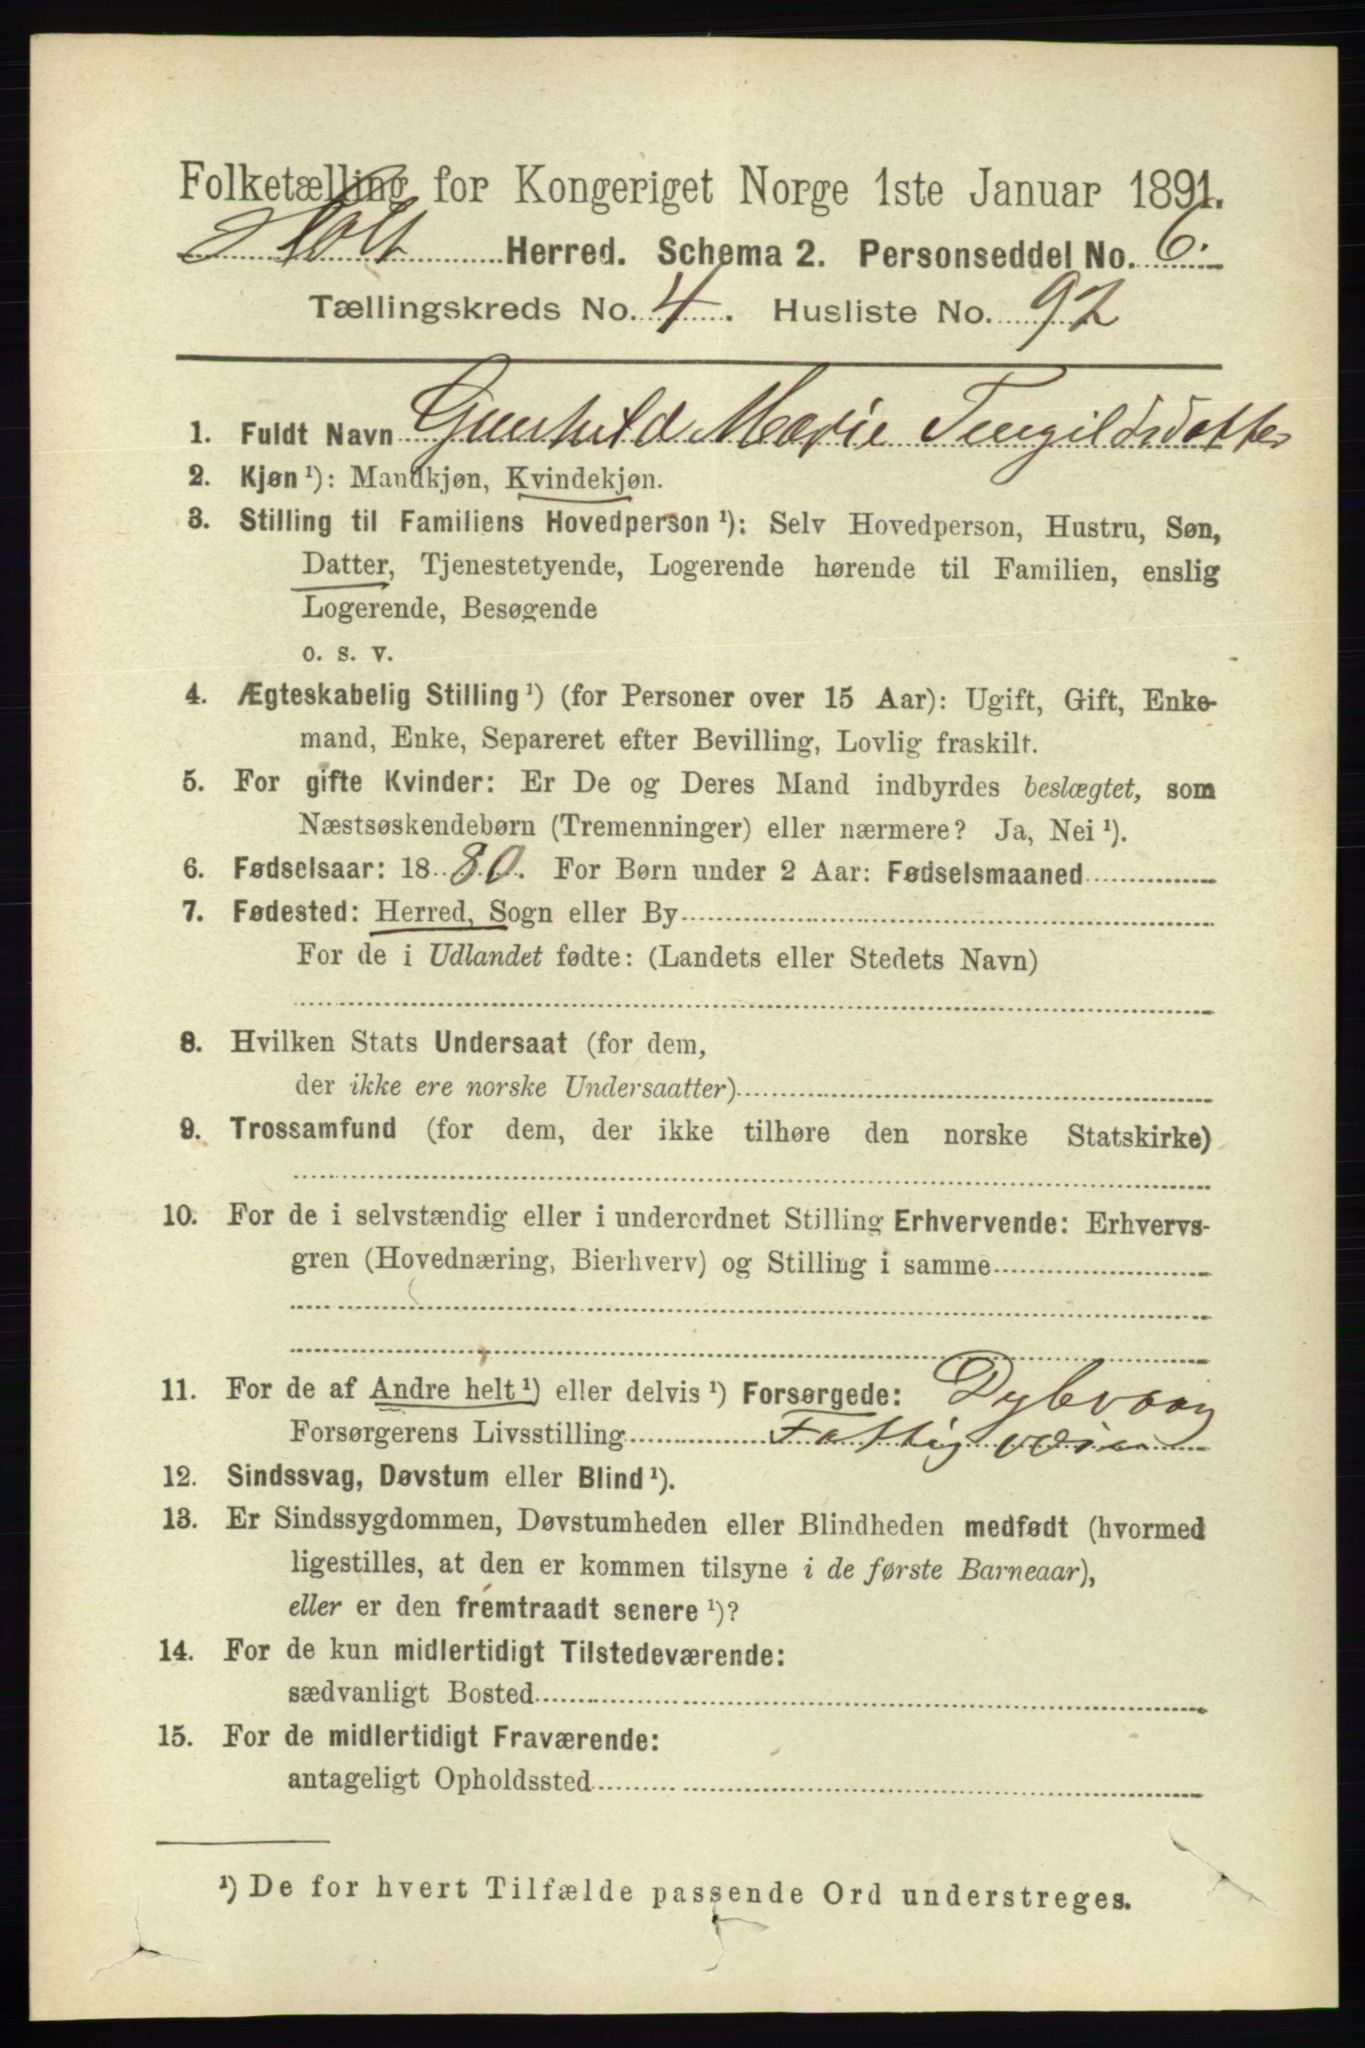 Folketælling for Kongeriget Norge 1ste Januar 1891.
Holt Herred. Schema 2. Personseddel No. 6.
Tællingskreds No. 4. Husliste No. 92
1. Fuldt Navn Gunhild Marie Tengildsdatter
2. Kjøn¹): Mandkjøn, Kvindekjøn.
3. Stilling til Familiens Hovedperson¹): Selv Hovedperson, Hustru, Søn,
Datter, Tjenestetyende, Logerende hørende til Familien, enslig
Logerende, Besøgende
o. s. v.
4. Ægteskabelig Stilling¹) (for Personer over 15 Aar): Ugift, Gift, Enke-
mand, Enke, Separeret efter Bevilling, Lovlig fraskilt.
5. For gifte Kvinder: Er De og Deres Mand indbyrdes beslægtet, som
Næstsøskendebørn (Tremenninger) eller nærmere? Ja, Nei¹).
6. Fødselsaar: 1880. For Børn under 2 Aar: Fødselsmaaned
7. Fødested: Herred, Sogn eller By
For de i Udlandet fødte: (Landets eller Stedets Navn)
8. Hvilken Stats Undersaat (for dem,
der ikke ere norske Undersaatter)
9. Trossamfund (for dem, der ikke tilhøre den norske Statskirke)
10. For de i selvstændig eller i underordnet Stilling Erhvervende: Erhvervs-
gren (Hovednæring, Bierhverv) og Stilling i samme
11. For de af Andre helt¹) eller delvis¹) Forsørgede: Dybvaag
Forsørgerens Livsstilling Fattigvæsen
12. Sindssvag, Døvstum eller Blind¹).
13. Er Sindssygdommen, Døvstumheden eller Blindheden medfødt (hvormed
ligestilles, at den er kommen tilsyne i de første Barneaar),
eller er den fremtraadt senere¹)?
14. For de kun midlertidigt Tilstedeværende:
sædvanligt Bosted
15. For de midlertidigt Fraværende:
antageligt Opholdssted
¹) De for hvert Tilfælde passende Ord understreges.